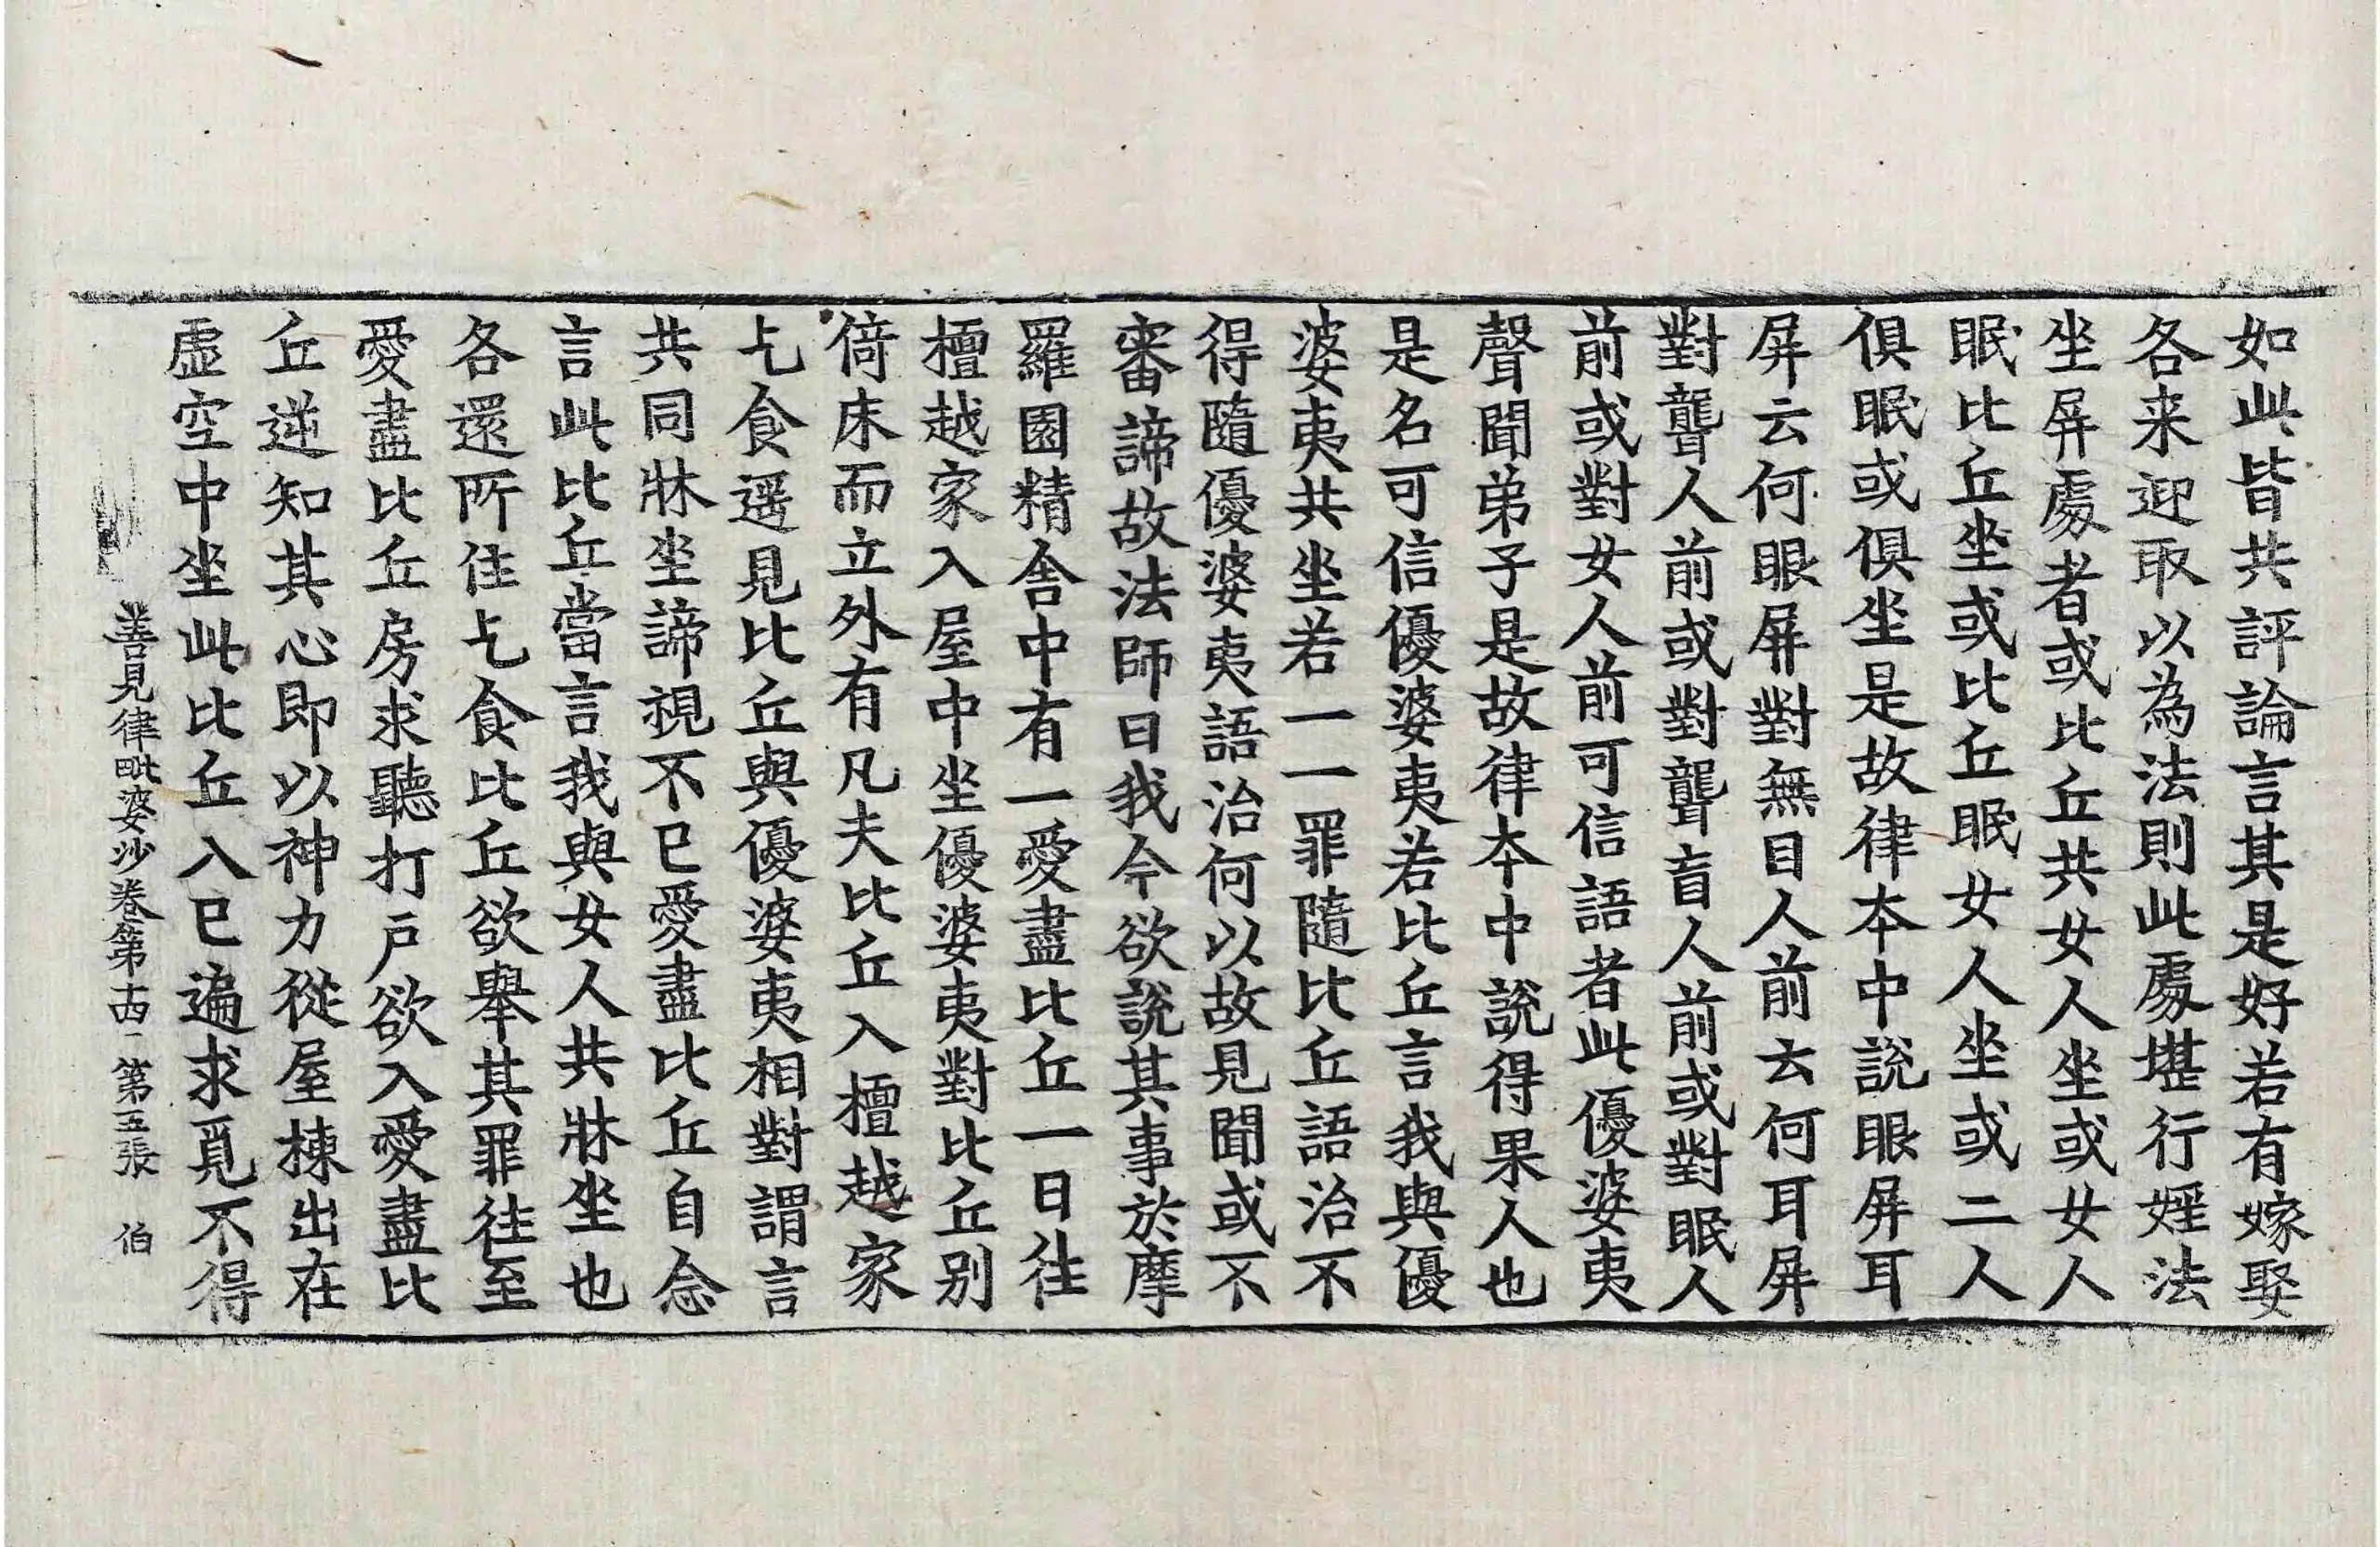 如此皆共評論言其是好若有嫁娶
各来迎取以為法則此處堪行婬法
坐屏處者或比丘共女人坐或女人
眠比丘坐或比丘眠女人坐或二人
俱眠或俱坐是故律本中說眼屏耳
屏云何眼屏對無目人前去何耳屏
對聾人前或對聾盲人前或對眠人
前或對女人前可信語者此優婆夷
聲聞弟子是故律本中說得果人也
是名可信優婆夷若比丘言我與優
婆夷共坐若一一罪隨比丘語治不
得隨優婆夷語治何以故見聞或不
審諦故法師曰我今欲說其事於摩
羅園精舎中有一愛盡比丘一日往
檀越家入屋中坐優婆夷對比丘別
倚床而立外有凡夫比丘入檀越家
乞食遥見比丘與優婆夷相對謂言
共同牀坐諦視不已愛盡比丘自念
言此比丘當言我與女人共牀坐也
各還所住乞食比丘欲舉其罪往至
愛盡比丘房求聽打戶欲入愛盡比
丘逆知其心即以神力從屋棟出在
虛空中坐此比丘入已遍求覓不得
善見律毗婆沙卷第十四 第五張 伯